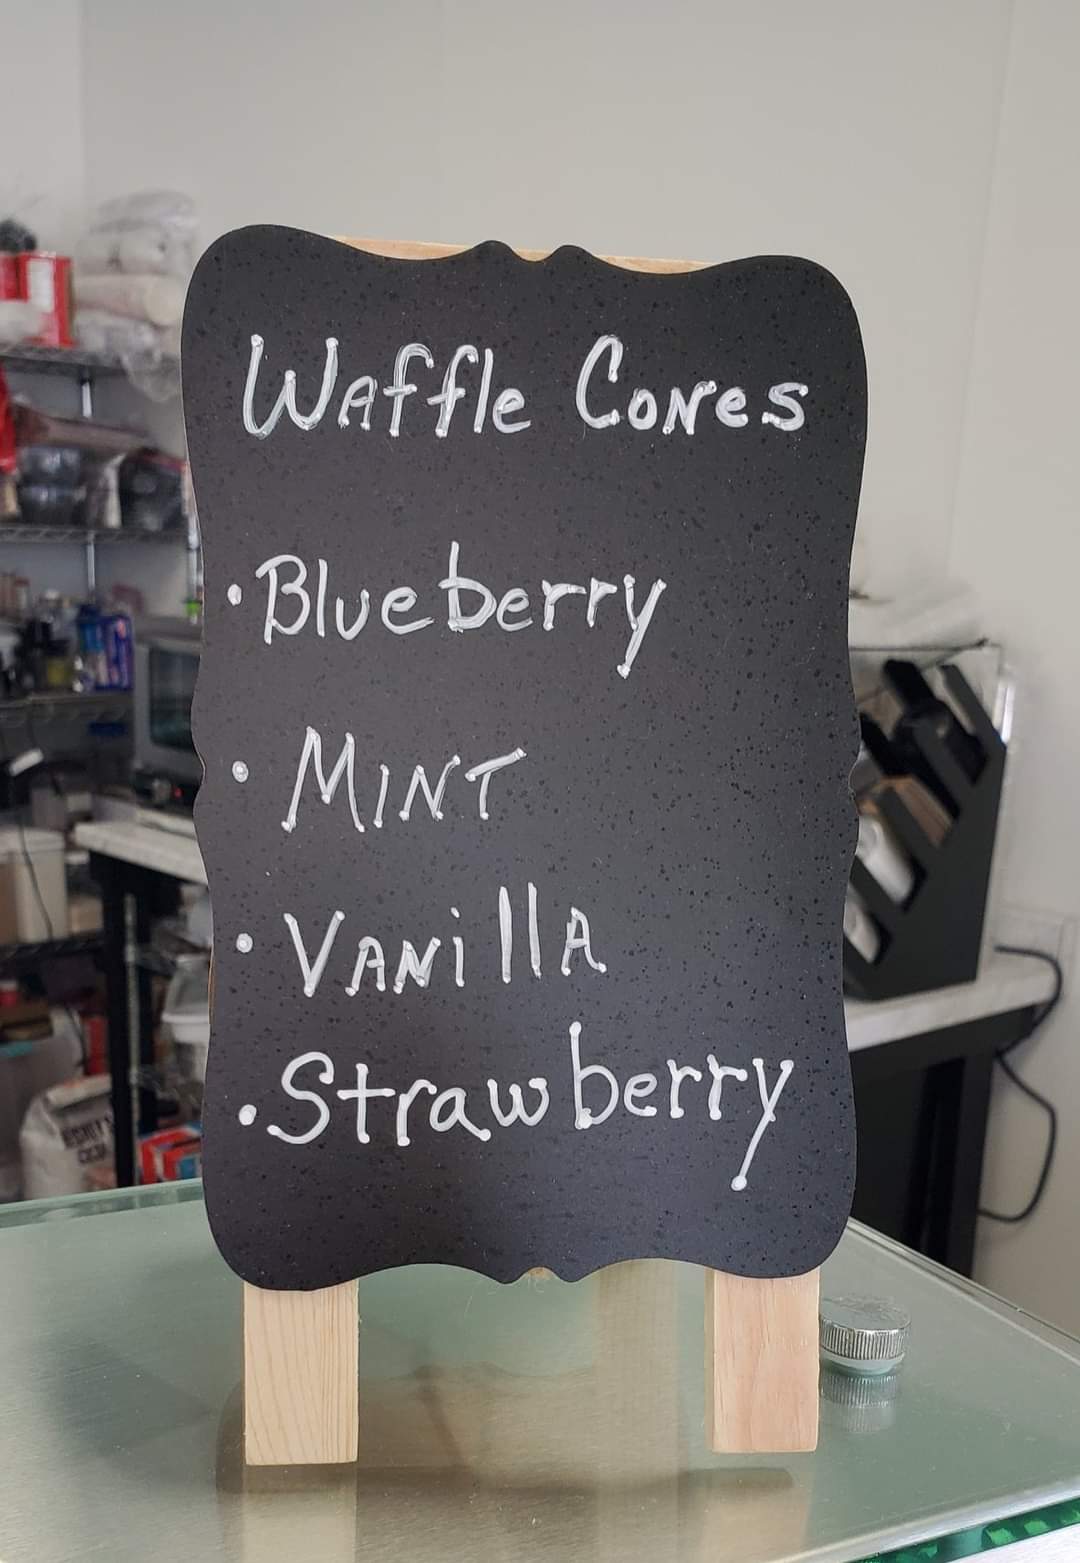 Waffle Cones
• Blueberry
• MINT
• VANillA
• Strawberry